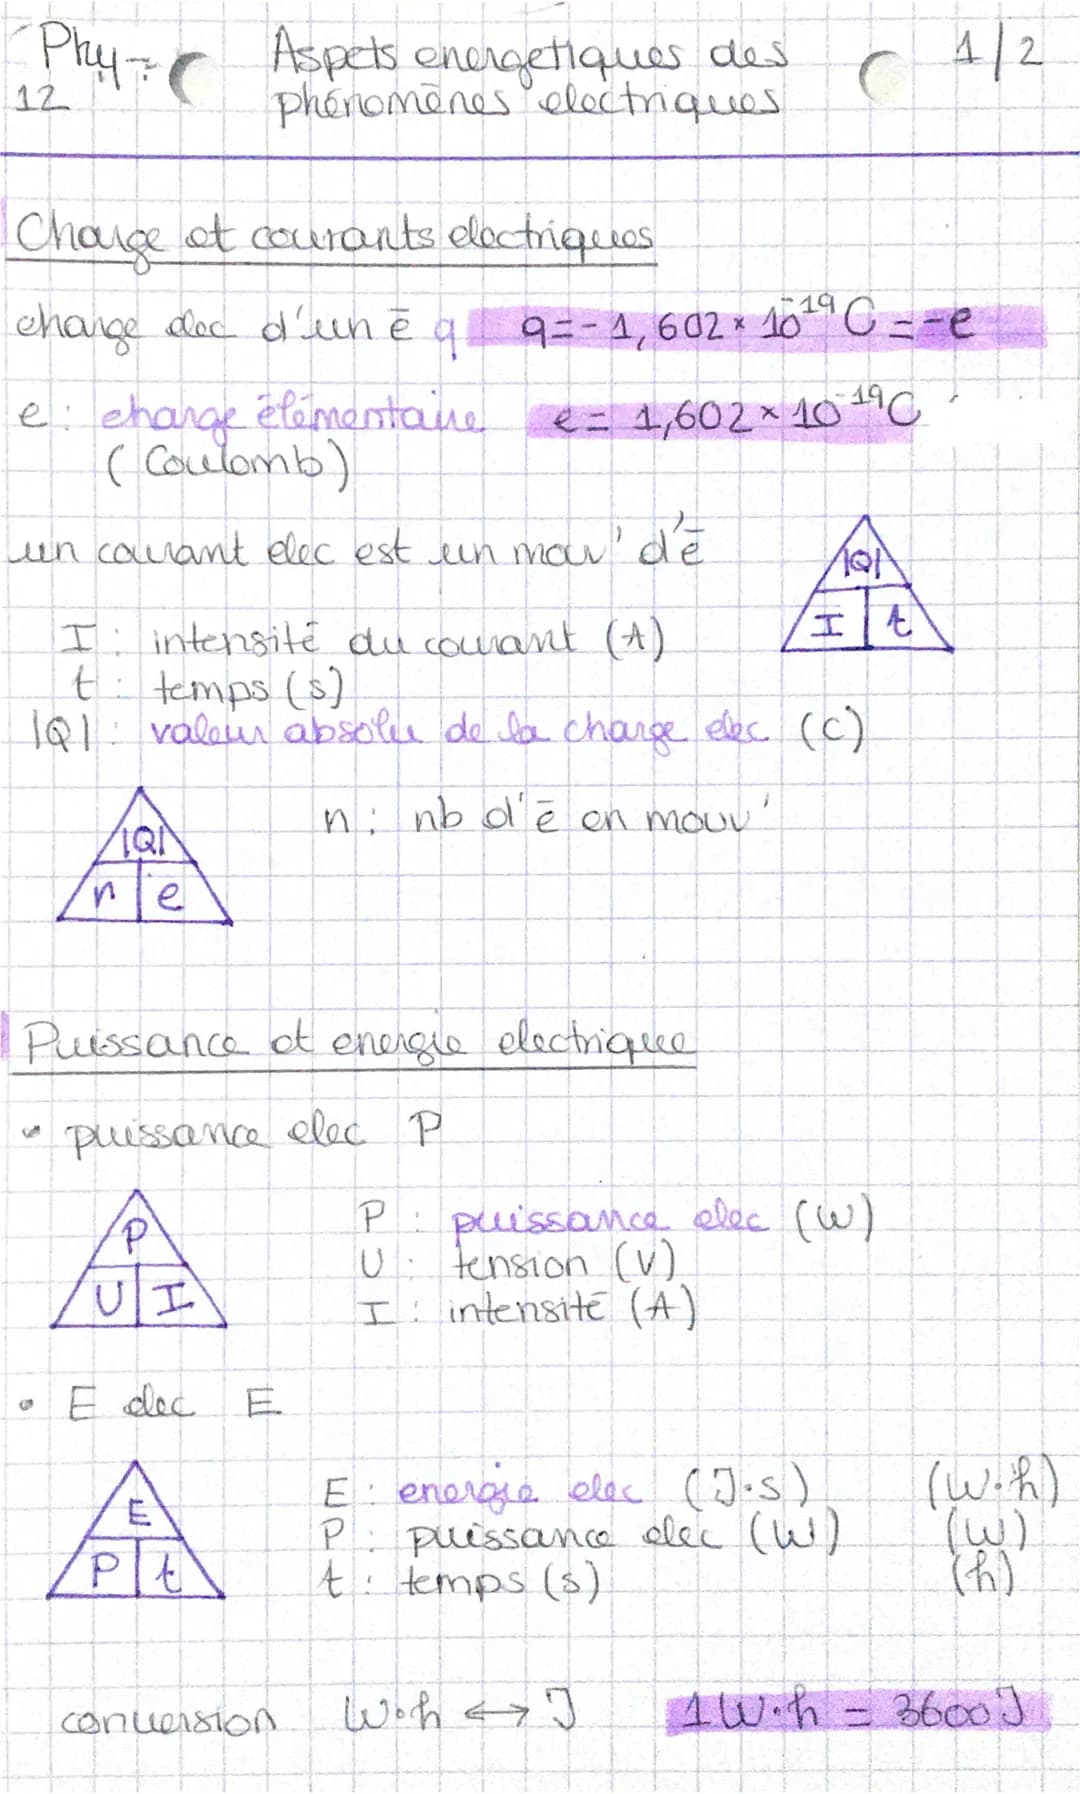 Phy-
12
Aspets energetiques des
phénomènes electriques
1/2
Charge et courants electriques
charge elec d'un ē q q=-1,602×10⁻¹⁹C=-e
e: charge élémentaire e= 1,602×10⁻¹⁹C
(Coulomb)
un courant elec est un mouv' d'ē
|Q|
I t
I: intensité du courant (A)
t: temps (s)
|Q|: valeur absolu de la charge elec (C)
n: nb d'ē en mouv'
|Q|
n e
Puissance et energie electrique
• puissance elec P
P
U I
P: puissance elec (W)
U: tension (V)
I: intensité (A)
• E elec E
E
P t
E: energie elec (J·s) (W·h)
P: puissance elec (W) (W)
t: temps (s) (h)
conversion W·h ↔ J 1W·h = 3600J